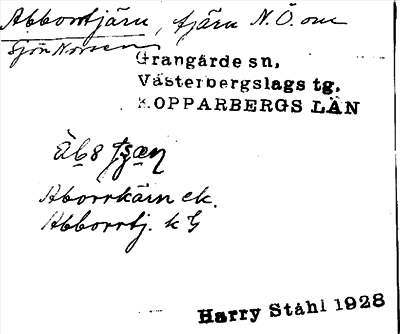 Abborrtjärn, tjärn N.Ö. om
sjön Norren
Grangärde sn,
Västerbergslags tg,
KOPPARBERGS LÄN
Aborrkärn ek.
Abborrtj. k G
Harry Ståhl 1928